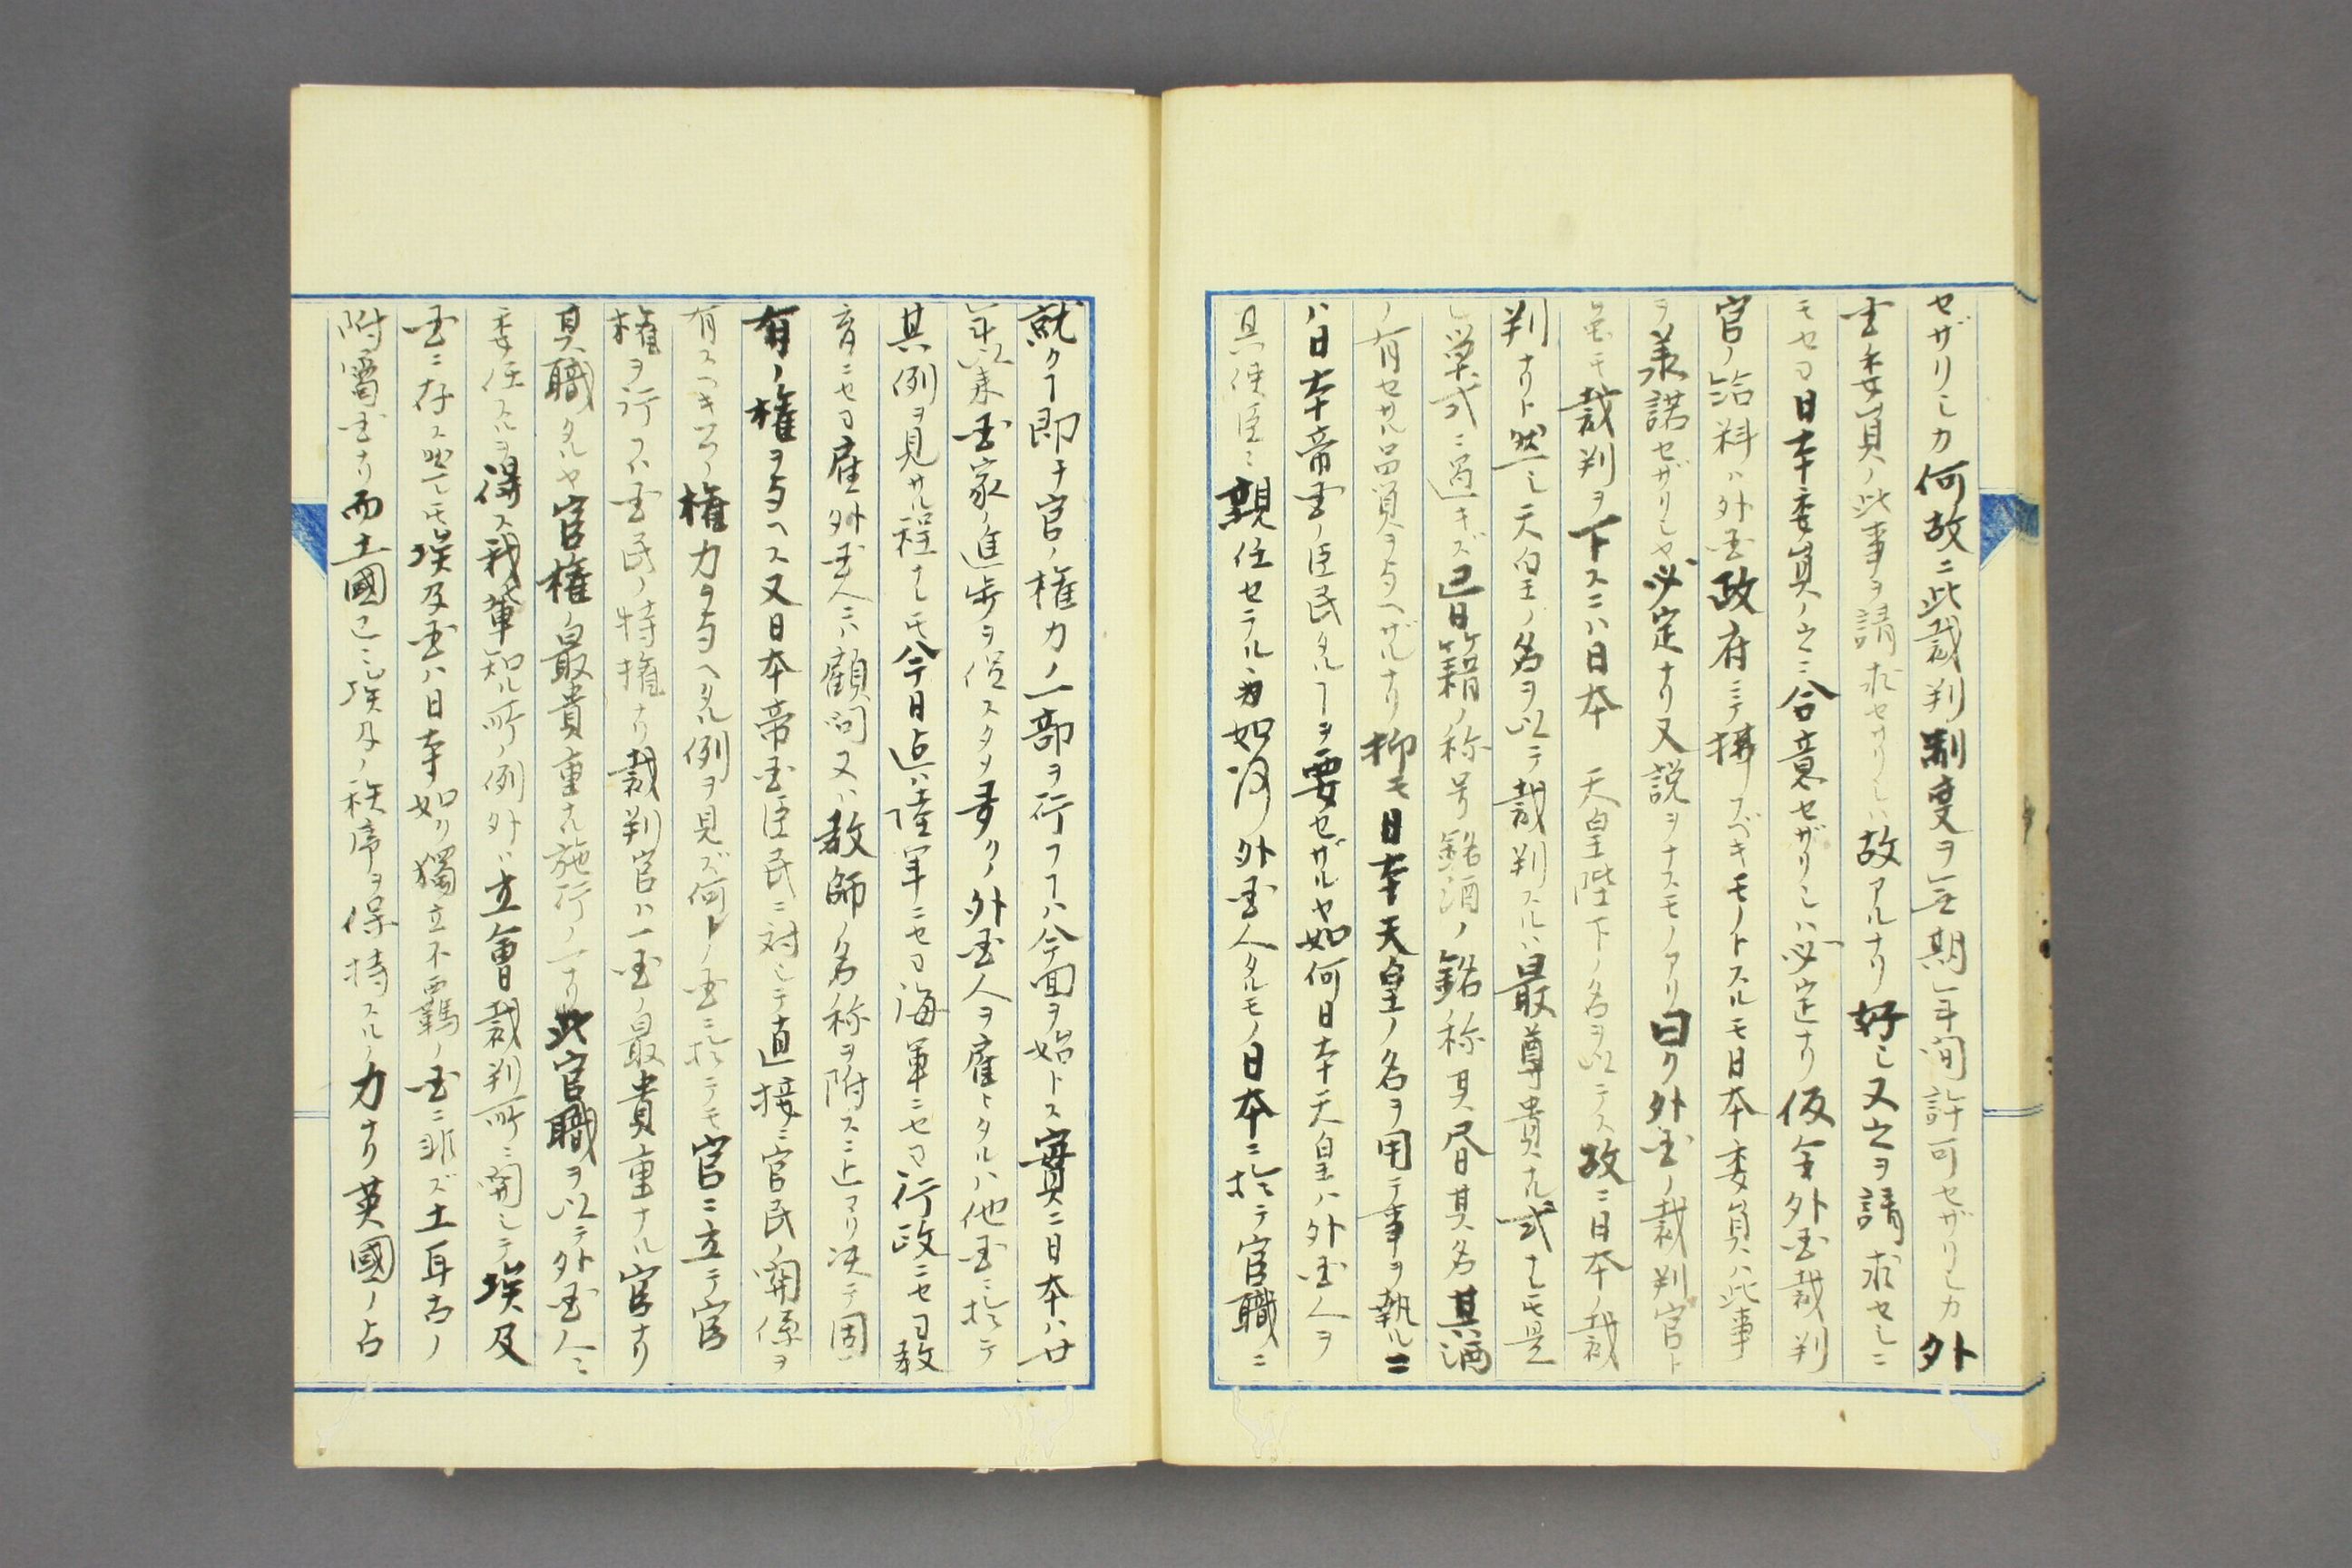 セザリシカ何故ニ此裁判制度ヲ無期年間許可セザリシカ外
国委員ノ此事ヲ請求セザリシハ故アルナリ好シ又之ヲ請求セシニ
モセヨ日本委員ノ之ニ合意セザリシハ必定ナリ仮令外国裁判
官ノ給料ハ外国政府ニテ拂フベキモノトスルモ日本委員ハ此事
ヲ承諾セザリシヤ必定ナリ又説ヲナスモノアリ曰ク外国ノ裁判官ト
雖モ裁判ヲ下スニハ日本　天皇陛下ノ名ヲ以テス故ニ日本ノ裁
判ナリト然シ天皇ノ名ヲ以テ裁判スルハ最尊貴ナル式ナレモ是
レ単式ニ過キズ已日籍ノ称号銘酒ノ銘称其居其名其酒
ノ有セサル品質ヲ与ヘザルナリ抑モ日本天皇ノ名ヲ用テ事ヲ執ルニ
ハ日本帝国ノ臣民タルヿヲ要セザルヤ如何日本天皇ハ外国人ヲ
其使臣ニ親任セラルヽヤ如何外国人タルモノ日本ニ於テ官職ニ
就クヿ即チ官ノ権力ノ一部ヲ行フヿハ今回ヲ始トス實ニ日本ハ廿
年以来国家ノ進歩ヲ促スタメ多クノ外国人ヲ雇ヒタルハ他国ニ於テ
其例ヲ見サル程ナレモ今日迄ハ陸軍ニセヨ海軍ニセヨ行政ニセヨ教
育ニセヨ雇外国人ニハ顧問又ハ教師ノ名称ヲ附スニ止マリ决テ固
有ノ権ヲ与ヘス又日本帝国臣民ニ対シテ直接ニ官民ノ関係ヲ
有スヘキ公ノ権力ヲ与ヘタル例ヲ見ズ何レノ国ニ於テモ官ニ立テ官
権ヲ行フハ国民ノ特権ナリ裁判官ハ一国ノ最貴重ナル官ナリ
其職タルヤ官権ノ最貴重ナル施行ノ一ナリ此官職ヲ以テ外国人ニ
委任スルヲ得ス我輩知ル所ノ例外ハ立會裁判所ニ関シテ埃及
国ニ存ス然レモ埃及国ハ日本ノ如リ獨立不羈ノ国ニ非ズ土耳古ノ
附属国ナリ而土國已ニ埃及ノ秩序ヲ保持スルノ力ナリ英國ノ占